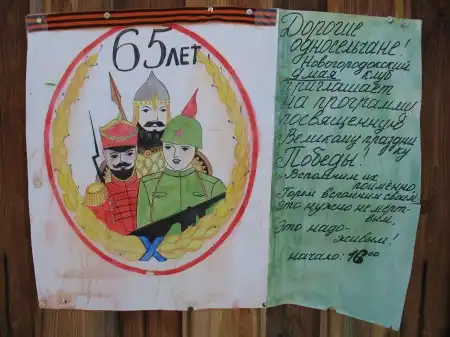 65 лет
Дорогие
односельчане!
Новогородокский
9 мая клуб
приглашает
на программу
посвященную
Великому праздни
ку
Победы!
Вспомним их
поименно,
Горем вспомним своим
это нужно не мерт-
вым,
Это надо-
живым!
начало: 16⁰⁰